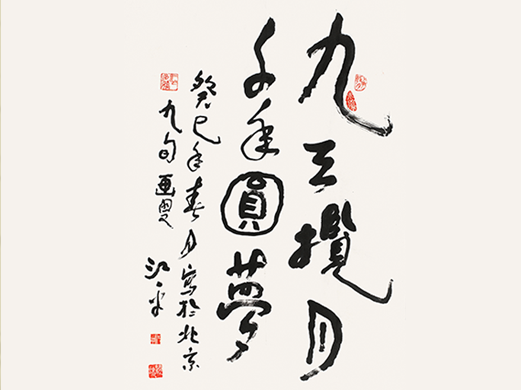 九天攬月
千年圓夢
癸巳年春月寫於北京
九旬画叟
江平